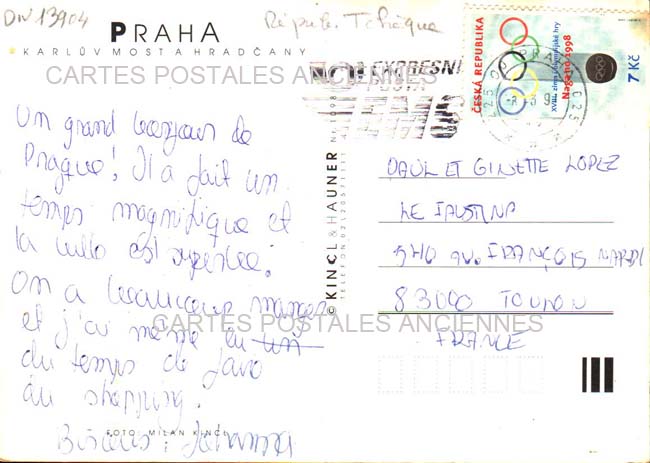 DIV 13904
PRAHA
KARLŮV MOST A HRADČANY
Répub. Tchèque
ČESKÁ REPUBLIKA
XVIII. zimní olympijské hry
Nagano 1998
7 Kč
EXPRESNÍ
POŠTA
EMS
CARTES POSTALES ANCIENNES
Un grand bonjour de
Prague! Il a fait un
temps magnifique et
la ville est superbe!
On a beaucoup mangé
et j'ai même eu un
du temps de faire
du shopping.
Bisous!
FOTO: MILAN KINCL
© KINCL & HAUNER
TELEFON 02/20571111
PAUL ET GINETTE LOPEZ
LE FAUSTINA
540 av. FRANÇOIS NARDI
83000 TOULON
FRANCE
CARTES POSTALES ANCIENNES